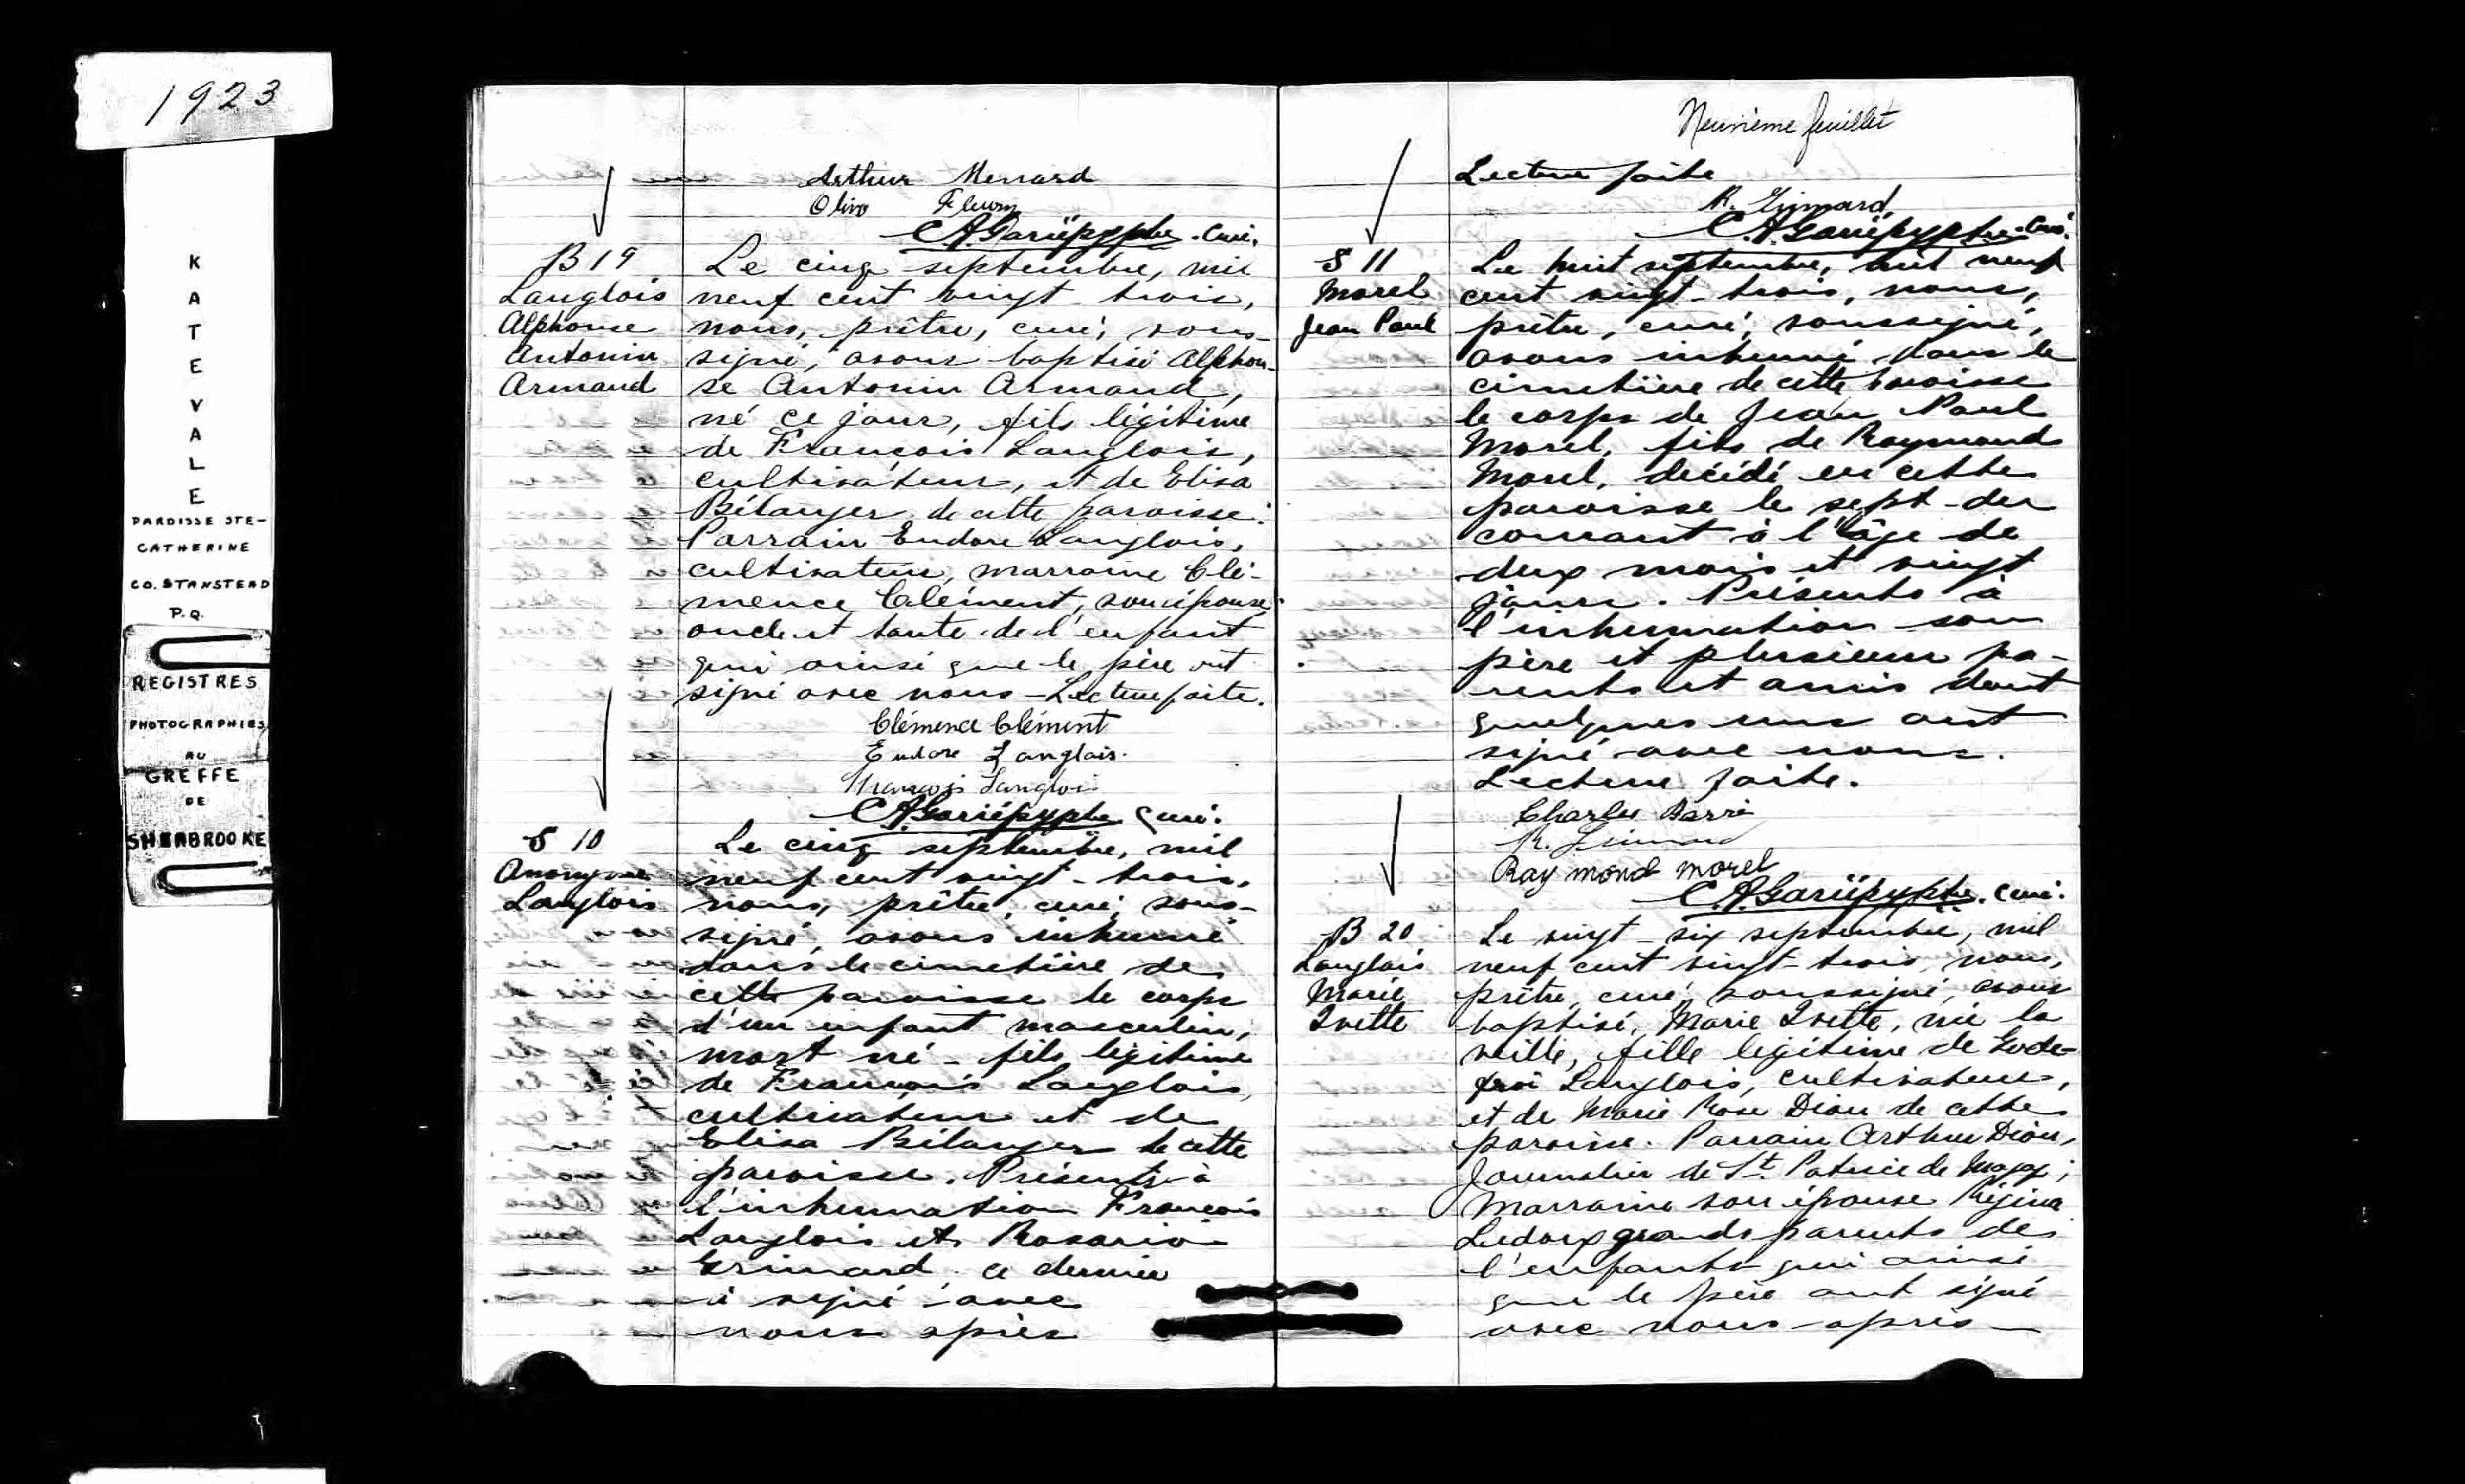 1923
K
A
T
E
V
A
L
E
PAROISSE STE-
CATHERINE
CO. STANSTEAD
P.Q.
REGISTRES
PHOTOGRAPHIES
AU
GREFFE
DE
SHERBROOKE
Arthur Menard
Oliva Fleury
C.A. Gariépy ptre. Curé.
B 19
Langlois
Alphonse
Antonin
Armand
Le cinq septembre, mil
neuf cent vingt-trois,
nous, prêtre, curé, sous-
signé, avons baptisé Alphon-
se Antonin Armand,
né ce jour, fils légitime
de François Langlois,
cultivateur, et de Elisa
Bélanger de cette paroisse.
Parrain Eudore Langlois,
cultivateur, marraine Clé-
mence Clément, son épouse
oncle et tante de l'enfant
qui ainsi que le père ont
signé avec nous - Lecture faite.
Clémence Clément
Eudore Langlois.
François Langlois
C.A. Gariépy ptre curé.
S 10
Anonyme
Langlois
Le cinq septembre, mil
neuf cent vingt-trois,
nous, prêtre, curé, sous-
signé, avons inhumé
dans le cimetière de
cette paroisse le corps
d'un enfant masculin,
mort né - fils légitime
de François Langlois,
cultivateur et de
Elisa Bélanger de cette
paroisse. Présents à
l'inhumation François
Langlois et Rosario
Grimard, ce dernier
a signé avec
nous après
Neuvième feuillet
Lecture faite
R. Grimard
C.A. Gariépy ptre. Curé.
S 11
Morel
Jean Paul
Le huit septembre, mil neuf
cent vingt-trois, nous,
prêtre, curé, soussigné,
avons inhumé dans le
cimetière de cette paroisse
le corps de Jean Paul
Morel, fils de Raymond
Morel, décédé en cette
paroisse le sept du
courant à l'âge de
deux mois et vingt
jours. Présents à
l'inhumation son
père et plusieurs pa-
rents et amis dont
quelques uns ont
signé avec nous.
Lecture faite.
Charles Barré
R. Grimard
Raymond morel
C.A. Gariépy ptre. Curé.
B 20
Langlois
Marie
Ivette
Le vingt-six septembre, mil
neuf cent vingt-trois, nous,
prêtre, curé soussigné, avons
baptisé, Marie Ivette, née la
veille, fille légitime de Gode-
froi Langlois, cultivateur,
et de Marie Rose Dion de cette
paroisse. Parrain Arthur Dion,
Journalier de St. Patrice de Magog;
Marraine son épouse Régina
Ledoux grands parents de
l'enfant qui ainsi
que le père ont signé
avec nous après